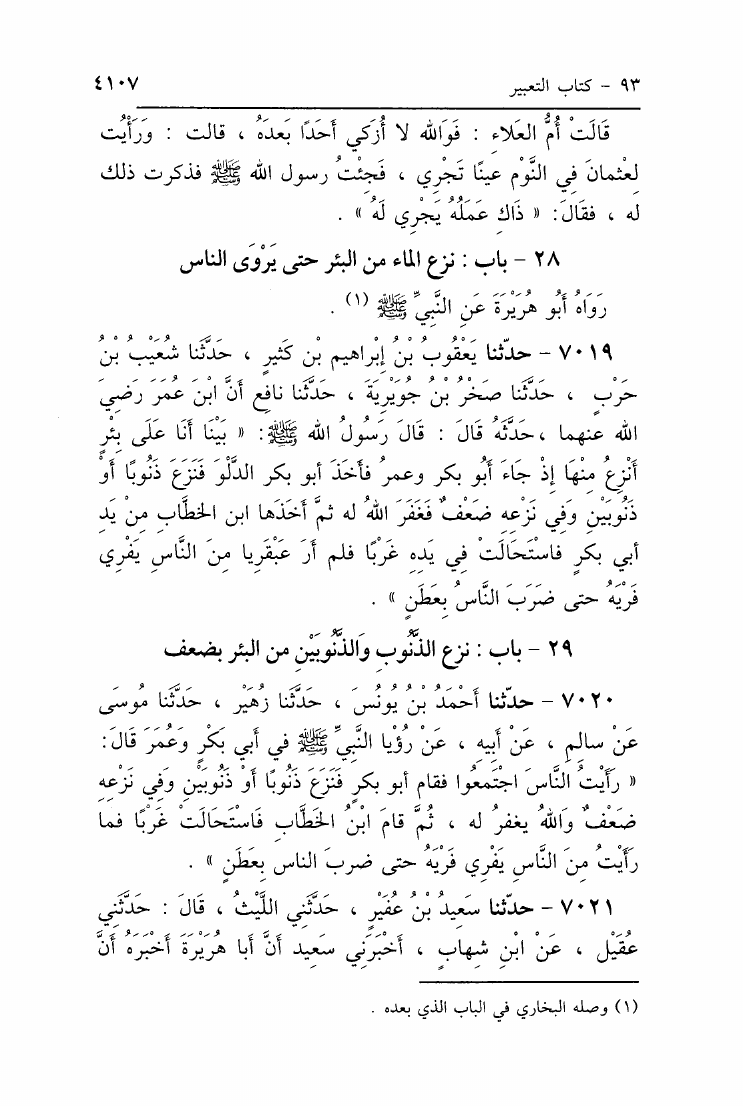 ٩٣ - كتاب التعبير ٤١٠٧
قَالَتْ أُمُّ العَلاءِ : فَوَاللهِ لا أُزَكِي أَحَدًا بَعدَهُ ، قالت : وَرَأَيْت
لعُثمانَ في النَّوْمِ عينًا تَجْرِي ، فَجِئْتُ رسول الله ﷺ فذكرت ذلك
له ، فقَالَ: « ذَاك عَمَلُهُ يَجْرِي لَهُ » .
٢٨ - باب : نزع الماء من البئر حتى يَرْوَى الناس
رَوَاهُ أَبُو هُرَيْرَةَ عَنِ النَّبِيِّ ﷺ (١) .
٧٠١٩ - حدّثنا يَعْقُوبُ بْنُ إِبْراهيم بْن كَثيرٍ ، حَدَّثَنا شُعَيْبُ بْنُ
حَرْبٍ ، حَدَّثَنا صَخْرُ بْنُ جُوَيْرِيَةَ ، حَدَّثَنا نافِع أَنَّ ابْنَ عُمَرَ رَضِيَ
الله عنهما ،حَدَّثَهُ قَالَ : قَالَ رَسُولُ الله ﷺ: « بَيْنَا أَنَا عَلَى بِئْرٍ
أَنْزِعُ مِنْهَا إِذْ جَاءَ أَبُو بكر وعمرُ فأخَذَ أبو بكر الدَّلْوَ فَنَزَعَ ذَنُوبًا أَوْ
ذَنُوبَيْنِ وَفي نَزْعِهِ ضَعْفٌ فَغَفَرَ اللهُ له ثمَّ أَخَذَها ابن الخطَّابِ مِنْ يَدِ
أبي بكرٍ فاسْتَحَالَتْ في يَدِهِ غَرْبًا فلم أَرَ عَبْقَريا مِنَ النَّاسِ يَفْرِي
فَرْيَهُ حتى ضَرَبَ النَّاسُ بِعَطَنٍ » .
٢٩ - باب : نزع الذَّنُوبِ وَالذَّنُوبَيْنِ من البئر بضعف
٧٠٢٠ - حدّثنا أَحْمَدُ بْنُ يُونُسَ ، حَدَّثَنا زُهَيْر ، حَدَّثَنا مُوسَى
عَنْ سالِمٍ ، عَنْ أَبِيهِ ، عَنْ رُؤْيا النَّبِيِّ ﷺ في أبي بَكْرٍ وَعُمَرَ قَالَ:
« رَأَيْتُ النَّاسَ اجتَمعُوا فقام أبو بكرٍ فَنَزَعَ ذَنُوبًا أَوْ ذَنُوبَيْنِ وَفي نَزْعِهِ
ضَعْفٌ وَاللهُ يغفرُ له ، ثُمَّ قامَ ابْنُ الخطَّاب فَاسْتَحَالَتْ غَرْبًا فما
رَأَيْتُ مِنَ النَّاسِ يَفْرِي فَرْيَهُ حتى ضربَ الناس بِعَطَنٍ » .
٧٠٢١ - حدّثنا سَعِيدُ بْنُ عُفَيْرٍ ، حَدَّثَنِي اللَّيْثُ ، قَالَ : حَدَّثَنِي
عقَيْل ، عَنْ ابْنِ شهابٍ ، أَخْبَرَنِي سَعيد أَنَّ أَبا هُرَيْرَةَ أَخْبَرَهُ أَنَّ
(١) وصله البخاري في الباب الذي بعده .